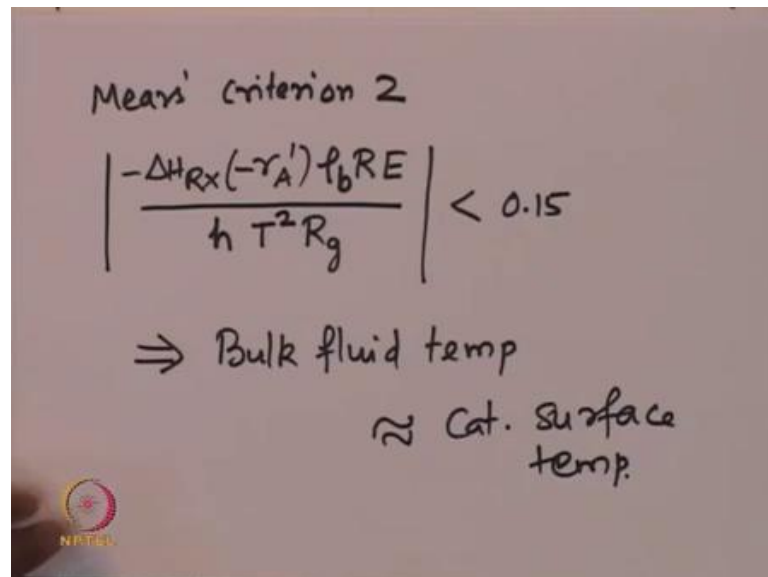 Mears' Criterion 2
| -ΔH_Rx (-r_A') ρ_b R E / h T² R_g | < 0.15
⇒ Bulk fluid temp
≈ Cat. surface
temp.
NPTEL